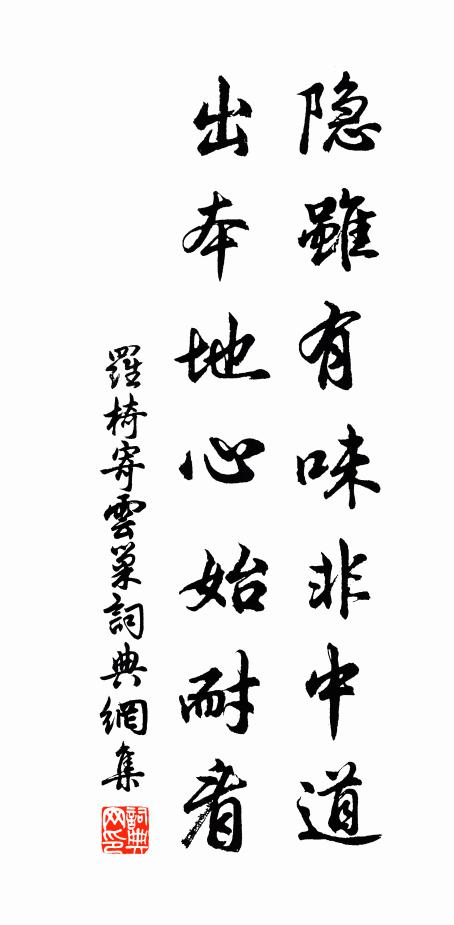 隐雖有味非中道
出本地心始耐看
羅椅寄雲巢詞典網集
詞典網印